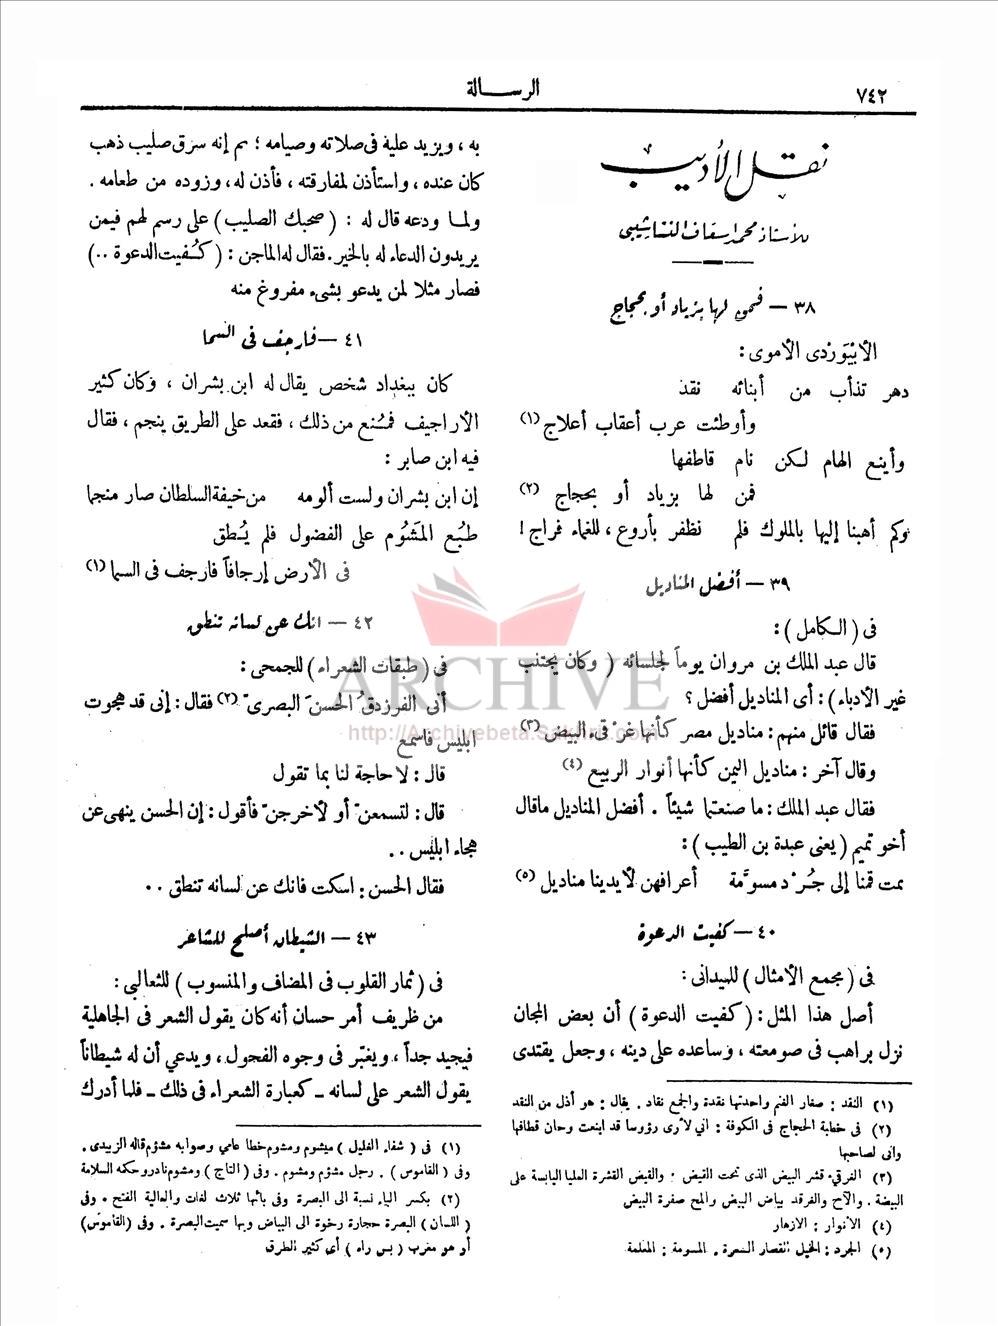 ٧٤٢
الرسالة
نقل الأديب
للأستاذ محمد إسعاف النشاشيبي
٣٨ — فمن لها بزياد أو بحجاج
الأبيوَردى الأموى:
دهر تذأب من أبنائه نقد
وأوطئت عرب أعقاب أعلاج (١)
وأينع الهام لكن نام قاطفها
فمن لها بزياد أو بحجاج (٢)
وكم أهبنا إليها بالملوك فلم نظفر بأروع، للغماء فراج!
٣٩ — أفضل المناديل
فى (الكامل):
قال عبد الملك بن مروان يوماً لجلسائه (وكان يجتنب
غير الأدباء): أى المناديل أفضل؟
فقال قائل منهم: مناديل مصر كأنها غرقىء البيض (٣)
وقال آخر: مناديل اليمن كأنها أنوار الربيع (٤)
فقال عبد الملك: ما صنعتما شيئاً. أفضل المناديل ماقال
أخو تميم (يعنى عبدة بن الطيب):
ثمت قمنا إلى جُرْد مسوَّمة أعرافهن لأيدينا مناديل (٥)
٤٠ — كفيت الدعوة
فى (مجمع الأمثال) للميدانى:
أصل هذا المثل: (كفيت الدعوة) أن بعض المجان
نزل براهب فى صومعته، وساعده على دينه، وجعل يقتدى
(١) النقد: صغار الغنم واحدتها نقدة والجمع نقاد. يقال: هو أذل من النقد
(٢) فى خطبة الحجاج فى الكوفة: انى لأرى رؤوسا قد اينعت وحان قطافها
وانى لصاحبها
(٣) الغرقىء قشر البيض الذى تحت القيض. والقيض القشرة العليا اليابسة على
البيضة. والآح والغرقد بياض البيض والمح صفرة البيض
(٤) الأنوار: الازهار
(٥) الجرد: الخيل القصار الشعرة. المسومة: المعلمة
به، ويزيد علية فى صلاته وصيامه؛ ثم إنه سرق صليب ذهب
كان عنده، واستأذن لمفارقته، فأذن له، وزوده من طعامه.
ولما ودعه قال له: (صحبك الصليب) على رسم لهم فيمن
يريدون الدعاء له بالخير. فقال له الماجن: (كُفيت الدعوة..)
فصار مثلا لمن يدعو بشىء مفروغ منه
٤١ — فأرجف فى السما
كان ببغداد شخص يقال له ابن بشران، وكان كثير
الأراجيف فمُنع من ذلك، فقعد على الطريق ينجم، فقال
فيه ابن صابر:
إن ابن بشران ولست ألومه من خيفة السلطان صار منجما
طبُع المَشوُم على الفضول فلم يُطق
فى الأرض إرجافاً فأرجف فى السما (١)
٤٢ — انك عن لسانه تنطق
فى (طبقات الشعراء) للجمحى:
أتى الفرزدقُ الحسنَ البصرىّ (٢) فقال: إنى قد هجوت
ابليس فاسمع
قال: لا حاجة لنا بما تقول
قال: لتسمعنّ أو لأخرجنّ فأقول: إن الحسن ينهى عن
هجاء ابليس..
فقال الحسن: اسكت فانك عن لسانه تنطق..
٤٣ — الشيطان أصلح للشاعر
فى (ثمار القلوب فى المضاف والمنسوب) للثعالبى:
من ظريف أمر حسان أنه كان يقول الشعر فى الجاهلية
فيجيد جداً، ويغبّر فى وجوه الفحول، ويدعي أن له شيطاناً
يقول الشعر على لسانه - كعبارة الشعراء فى ذلك - فلما أدرك
(١) فى (شفاء الغليل) ميشوم ومشوم خطا عامي وصوابه مشؤم قاله الزبيدى.
وفى (القاموس). رجل مشؤم ومشوم. وفى (التاج) ومشوم نادر وحكه السلامة
(٢) بكسر الباء نسبة الى البصرة وفى بائها ثلاث لغات والعالية الفتح. وفى
(اللسان) البصرة حجارة رخوة الى البياض وبها سميت البصرة. وفى (القاموس)
أو هو معرب (بس راه) أى كثير الطرق
ARCHIVE
http://Archivebeta.Sakhrit.com